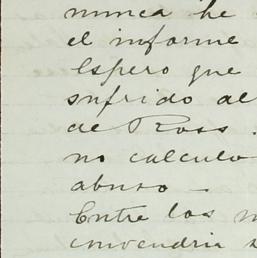 nunca he
el informe
Espero que
sufrido al
de Ross.
no calculo
abuso —
Entre los
convendria